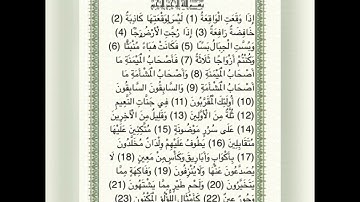 بسم الله الرحمن الرحيم
إِذَا وَقَعَتِ الْوَاقِعَةُ (1) لَيْسَ لِوَقْعَتِهَا كَاذِبَةٌ (2)
خَافِضَةٌ رَافِعَةٌ (3) إِذَا رُجَّتِ الْأَرْضُ رَجًّا (4)
وَبُسَّتِ الْجِبَالُ بَسًّا (5) فَكَانَتْ هَبَاءً مُنْبَثًّا (6)
وَكُنْتُمْ أَزْوَاجًا ثَلَاثَةً (7) فَأَصْحَابُ الْمَيْمَنَةِ مَا
أَصْحَابُ الْمَيْمَنَةِ (8) وَأَصْحَابُ الْمَشْأَمَةِ مَا
أَصْحَابُ الْمَشْأَمَةِ (9) وَالسَّابِقُونَ السَّابِقُونَ
(10) أُولَئِكَ الْمُقَرَّبُونَ (11) فِي جَنَّاتِ النَّعِيمِ
(12) ثُلَّةٌ مِنَ الْأَوَّلِينَ (13) وَقَلِيلٌ مِنَ الْآخِرِينَ
(14) عَلَى سُرُرٍ مَوْضُونَةٍ (15) مُتَّكِئِينَ عَلَيْهَا
مُتَقَابِلِينَ (16) يَطُوفُ عَلَيْهِمْ وِلْدَانٌ مُخَلَّدُونَ
(17) بِأَكْوَابٍ وَأَبَارِيقَ وَكَأْسٍ مِنْ مَعِينٍ (18) لَا
يُصَدَّعُونَ عَنْهَا وَلَا يُنْزِفُونَ (19) وَفَاكِهَةٍ مِمَّا
يَتَخَيَّرُونَ (20) وَلَحْمِ طَيْرٍ مِمَّا يَشْتَهُونَ (21)
وَحُورٌ عِينٌ (22) كَأَمْثَالِ اللُّؤْلُؤِ الْمَكْنُونِ (23)